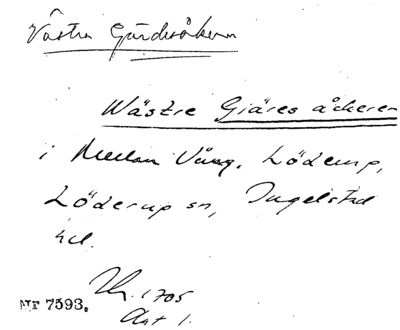 Västra Gärdesåkern
Wästre Giäres åckeren
i Mellan Vång, Löderup,
Löderup sn, Ingelstad
hd.
Lh. 1705
Akt 1.
Nr 7593.